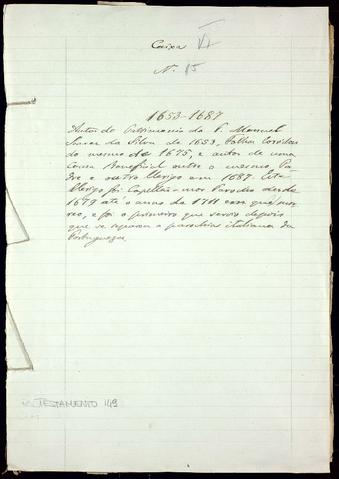 Caixa VI
N. 15
1653-1687
Autos de Patrimonio do P. Manuel
Soares da Silva de 1653, Folhas Corridas
do mesmo de 1675, e autos de uma
causa Beneficial entre o mesmo Pa-
dre e outro Clerigo em 1687. Este
Clerigo foi Capellão-mor Parocho desde
1679 até o anno de 1711 em que mor-
reo, e foi o primeiro que servio depois
que se separou a parochia italiana da
Portugueza
TESTAMENTO 149